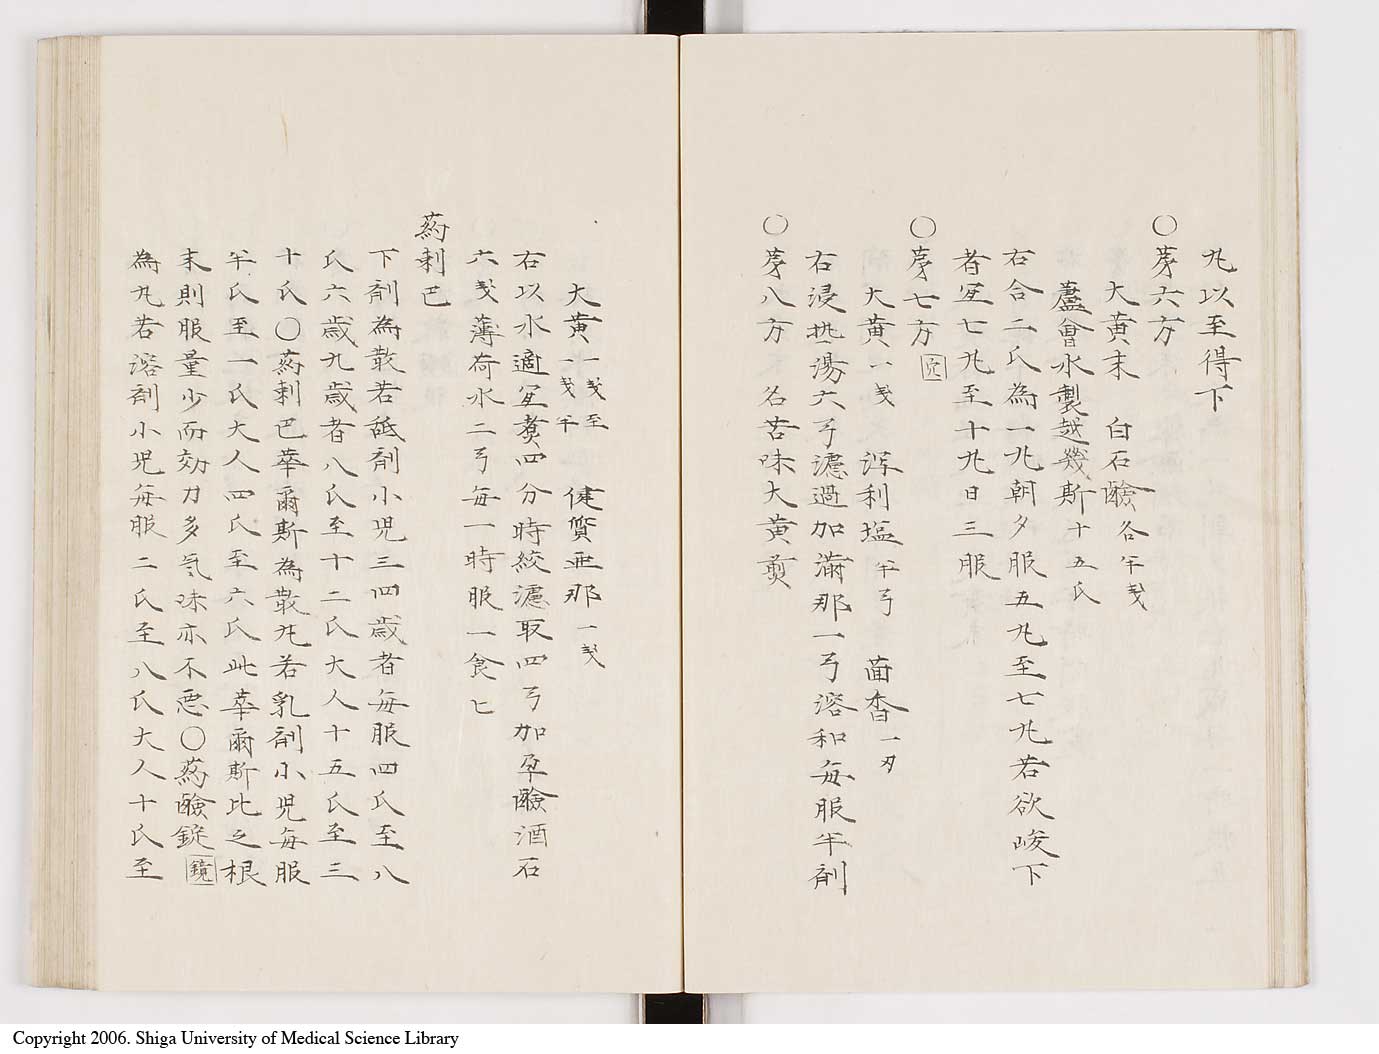 丸以至得下
〇茅六方
大黄末 白石鹸各半戔
蘆會水製越幾斯十五氏
右合二氏為一丸朝夕服五丸至七丸若欲峻下
者宜七丸至十丸日三服
〇茅七方
大黄一戔 瀉利塩半弓 茴香一刄
右浸热湯六弓濾過加満那一弓溶和毎服半剤
〇茅八方 名苦味大黄煎
大黄一戔至一戔半 健質亜那一戔
右以水適宜煑四分時絞濾取四弓加孕鹸酒石
六戔薄荷水二弓毎一時服一食匕
葯剌巴
下剤為散若舐剤小児三四歳者毎服四氏至八
氏六歳九歳者八氏至十二氏大人十五氏至三
十氏〇葯剌巴華爾斯為散丸若乳剤小児毎服
半氏至一氏大人四氏至六氏此華爾斯比之根
末則服量少而効力多気味亦不悪〇葯鹸錠鏡
為丸若溶剤小児毎服二氏至八氏大人十氏至
Copyright 2006. Shiga University of Medical Science Library